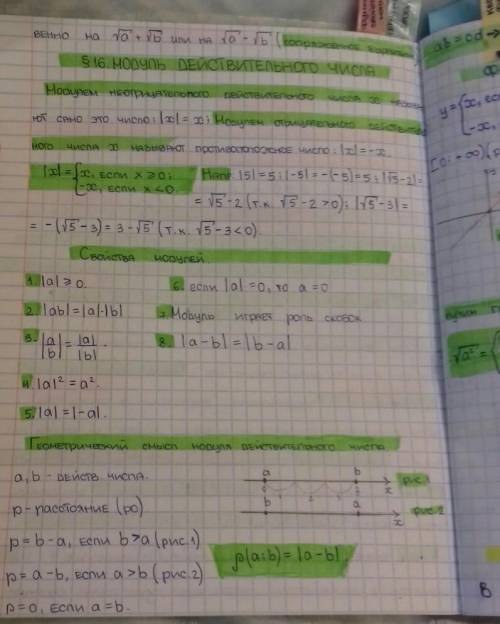 венно на √a + √b или на √a - √b (сопряженное
§16. Модуль действительного числа
Модулем неотрицательного действительного числа x
ют само это число: |x| = x; модулем отрицательного
ного числа x называют противоположное число: |x| = -x.
|x| = {x, если x ≥ 0; -x, если x < 0. Напр: |5| = 5; |-5| = -(-5) = 5; |√5-2| =
= √5 - 2 (т.к. √5 - 2 > 0); |√5 - 3| =
= -(√5 - 3) = 3 - √5 (т.к. √5 - 3 < 0).
Свойства модулей
1. |a| ≥ 0.
2. |ab| = |a|·|b|
3. |a/b| = |a|/|b|.
4. |a|² = a².
5. |a| = |-a|.
6. если |a| = 0, то a = 0
7. Модуль играет роль скобок
8. |a - b| = |b - a|
Геометрический смысл модуля действительного числа
a, b - действ. числа.
p - расстояние (ро)
p = b - a, если b > a (рис. 1)
p = a - b, если a > b (рис. 2)
p = 0, если a = b.
a b x рис. 1
b a x рис. 2
p(a;b) = |a - b|.
ab = cd
y = {x, есл
-x,
[0; +∞)
√a² =
В